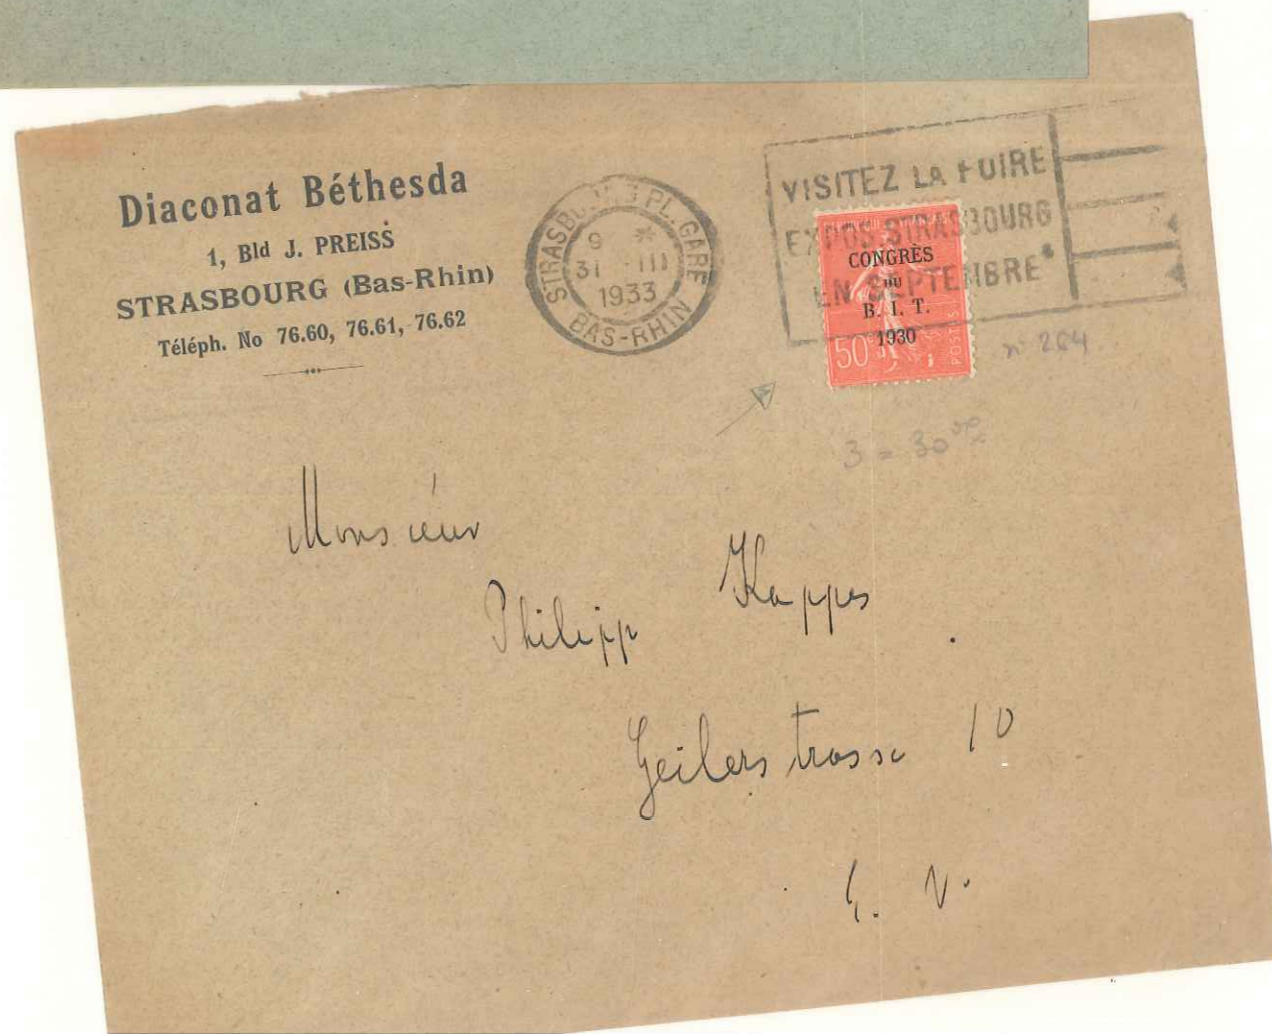 Diaconat Béthesda
1, Bld J. PREISS
STRASBOURG (Bas-Rhin)
Téléph. No 76.60, 76.61, 76.62
STRASBOURG PL. GARE
9 *
31 III
1933
BAS-RHIN
VISITEZ LA FOIRE
EXPOS. STRASBOURG
EN SEPTEMBRE
CONGRÈS
DU
B. I. T.
1930
50c
POSTES
n° 264
3 = 30
Monsieur
Philipp Kappes
Geilerstrasse 10
E. V.